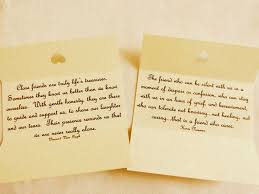 Close friends are truly life's treasures.
Sometimes they know us better than we know
ourselves. With gentle honesty, they are there
to guide and support us, to share our laughter
and our tears. Their presence reminds us that
we are never really alone.
The friend who can be silent with us in a
moment of despair or confusion, who can stay
with us in an hour of grief and bereavement,
who can tolerate not knowing, not healing, not
curing...that is a friend who cares.